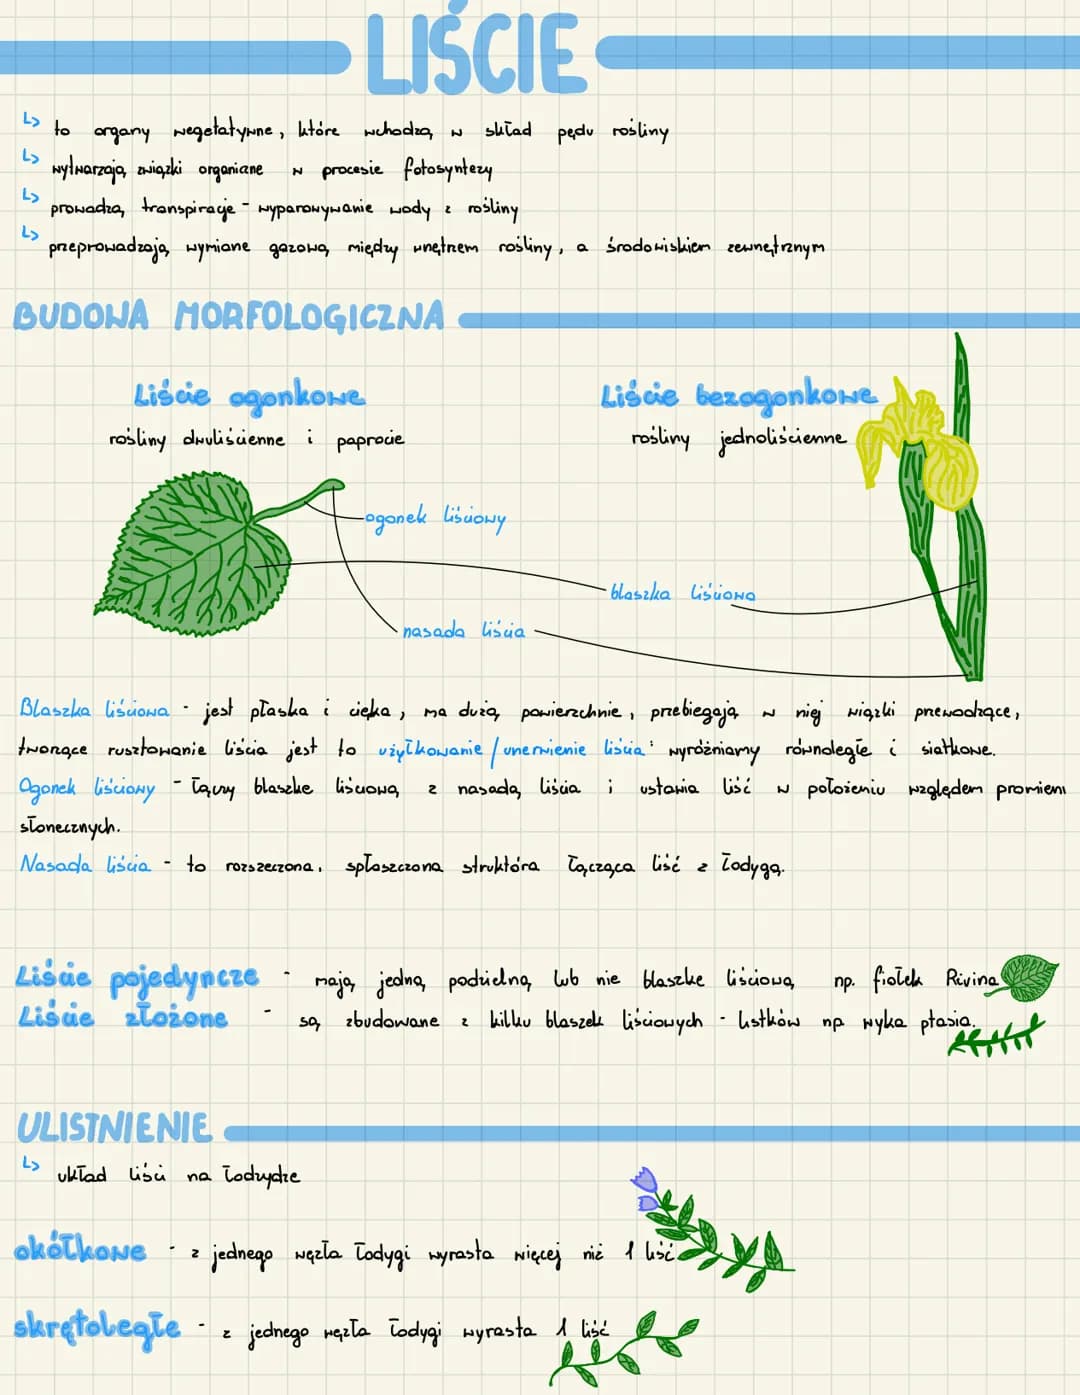 LIŚCIE
↳ to organy wegetatywne, które wchodzą w skład pędu rośliny
↳ wytwarzają związki organiczne w procesie fotosyntezy
↳ prowadzą transpiracje - wyparowywanie wody z rośliny
↳ przeprowadzają wymiane gazową między wnętrzem rośliny, a środowiskiem zewnętrznym
BUDOWA MORFOLOGICZNA
Liście ogonkowe
Liście bezogonkowe
rośliny dwuliścienne i paprocie
rośliny jednoliścienne
ogonek liściowy
blaszka liściowa
nasada liścia
Blaszka liściowa - jest płaska i cięka, ma dużą powierzchnie, przebiegają w niej wiązki przewodzące,
tworzące rusztowanie liścia jest to użyłkowanie / unerwienie liścia: wyróżniamy równoległe i siatkowe.
Ogonek liściowy - łączy blaszke liściową z nasadą liścia i ustawia liść w położeniu względem promieni
słonecznych.
Nasada liścia - to rozszeczona, spłaszczona struktóra łącząca liść z łodygą.
Liście pojedyncze - mają jedną podzielną lub nie blaszke liściową np. fiołek Rivina
Liście złożone - są zbudowane z kilku blaszek liściowych - listków np wyka ptasia.
ULISTNIENIE
↳ układ liści na łodydze
okółkowe - z jednego węzła łodygi wyrasta więcej niż 1 liść
skrętoległe - z jednego węzła łodygi wyrasta 1 liść